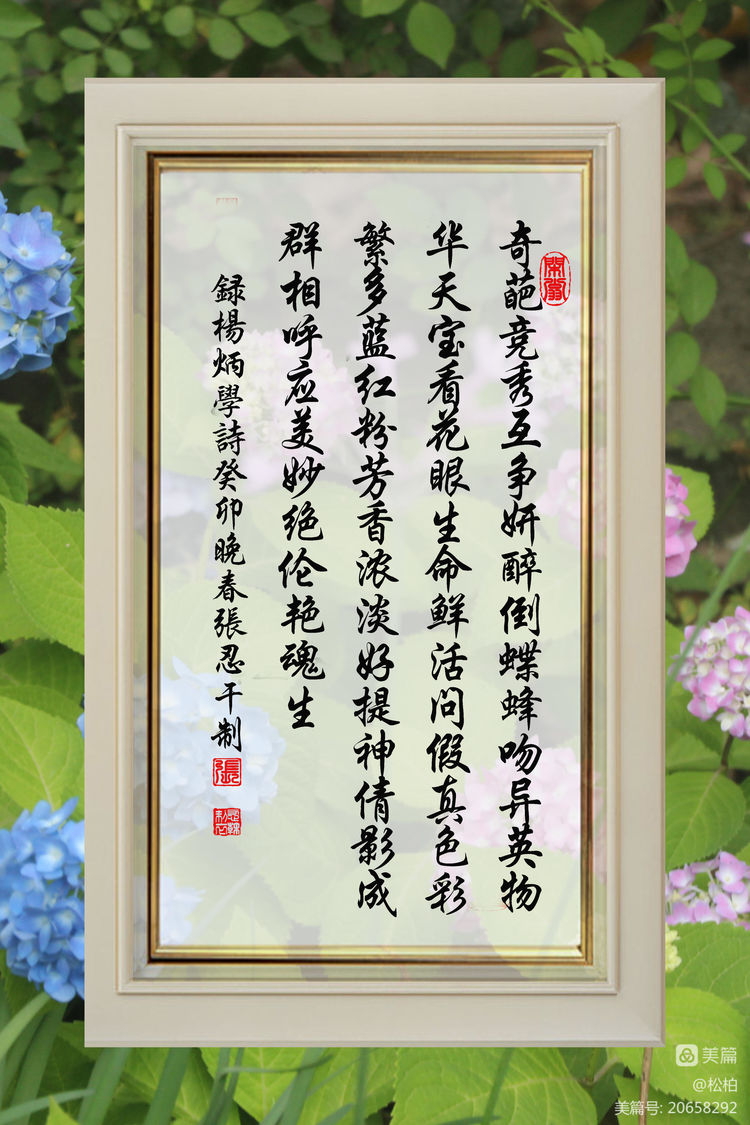 奇葩竞秀互争妍醉倒蝶蜂吻异英物
华天宝看花眼生命鲜活问假真色彩
繁多蓝红粉芳香浓淡好提神倩影成
群相呼应美妙绝伦艳魂生
録楊炳學詩癸卯晚春張忍干制
張
美篇
@松柏
美篇号: 20658292